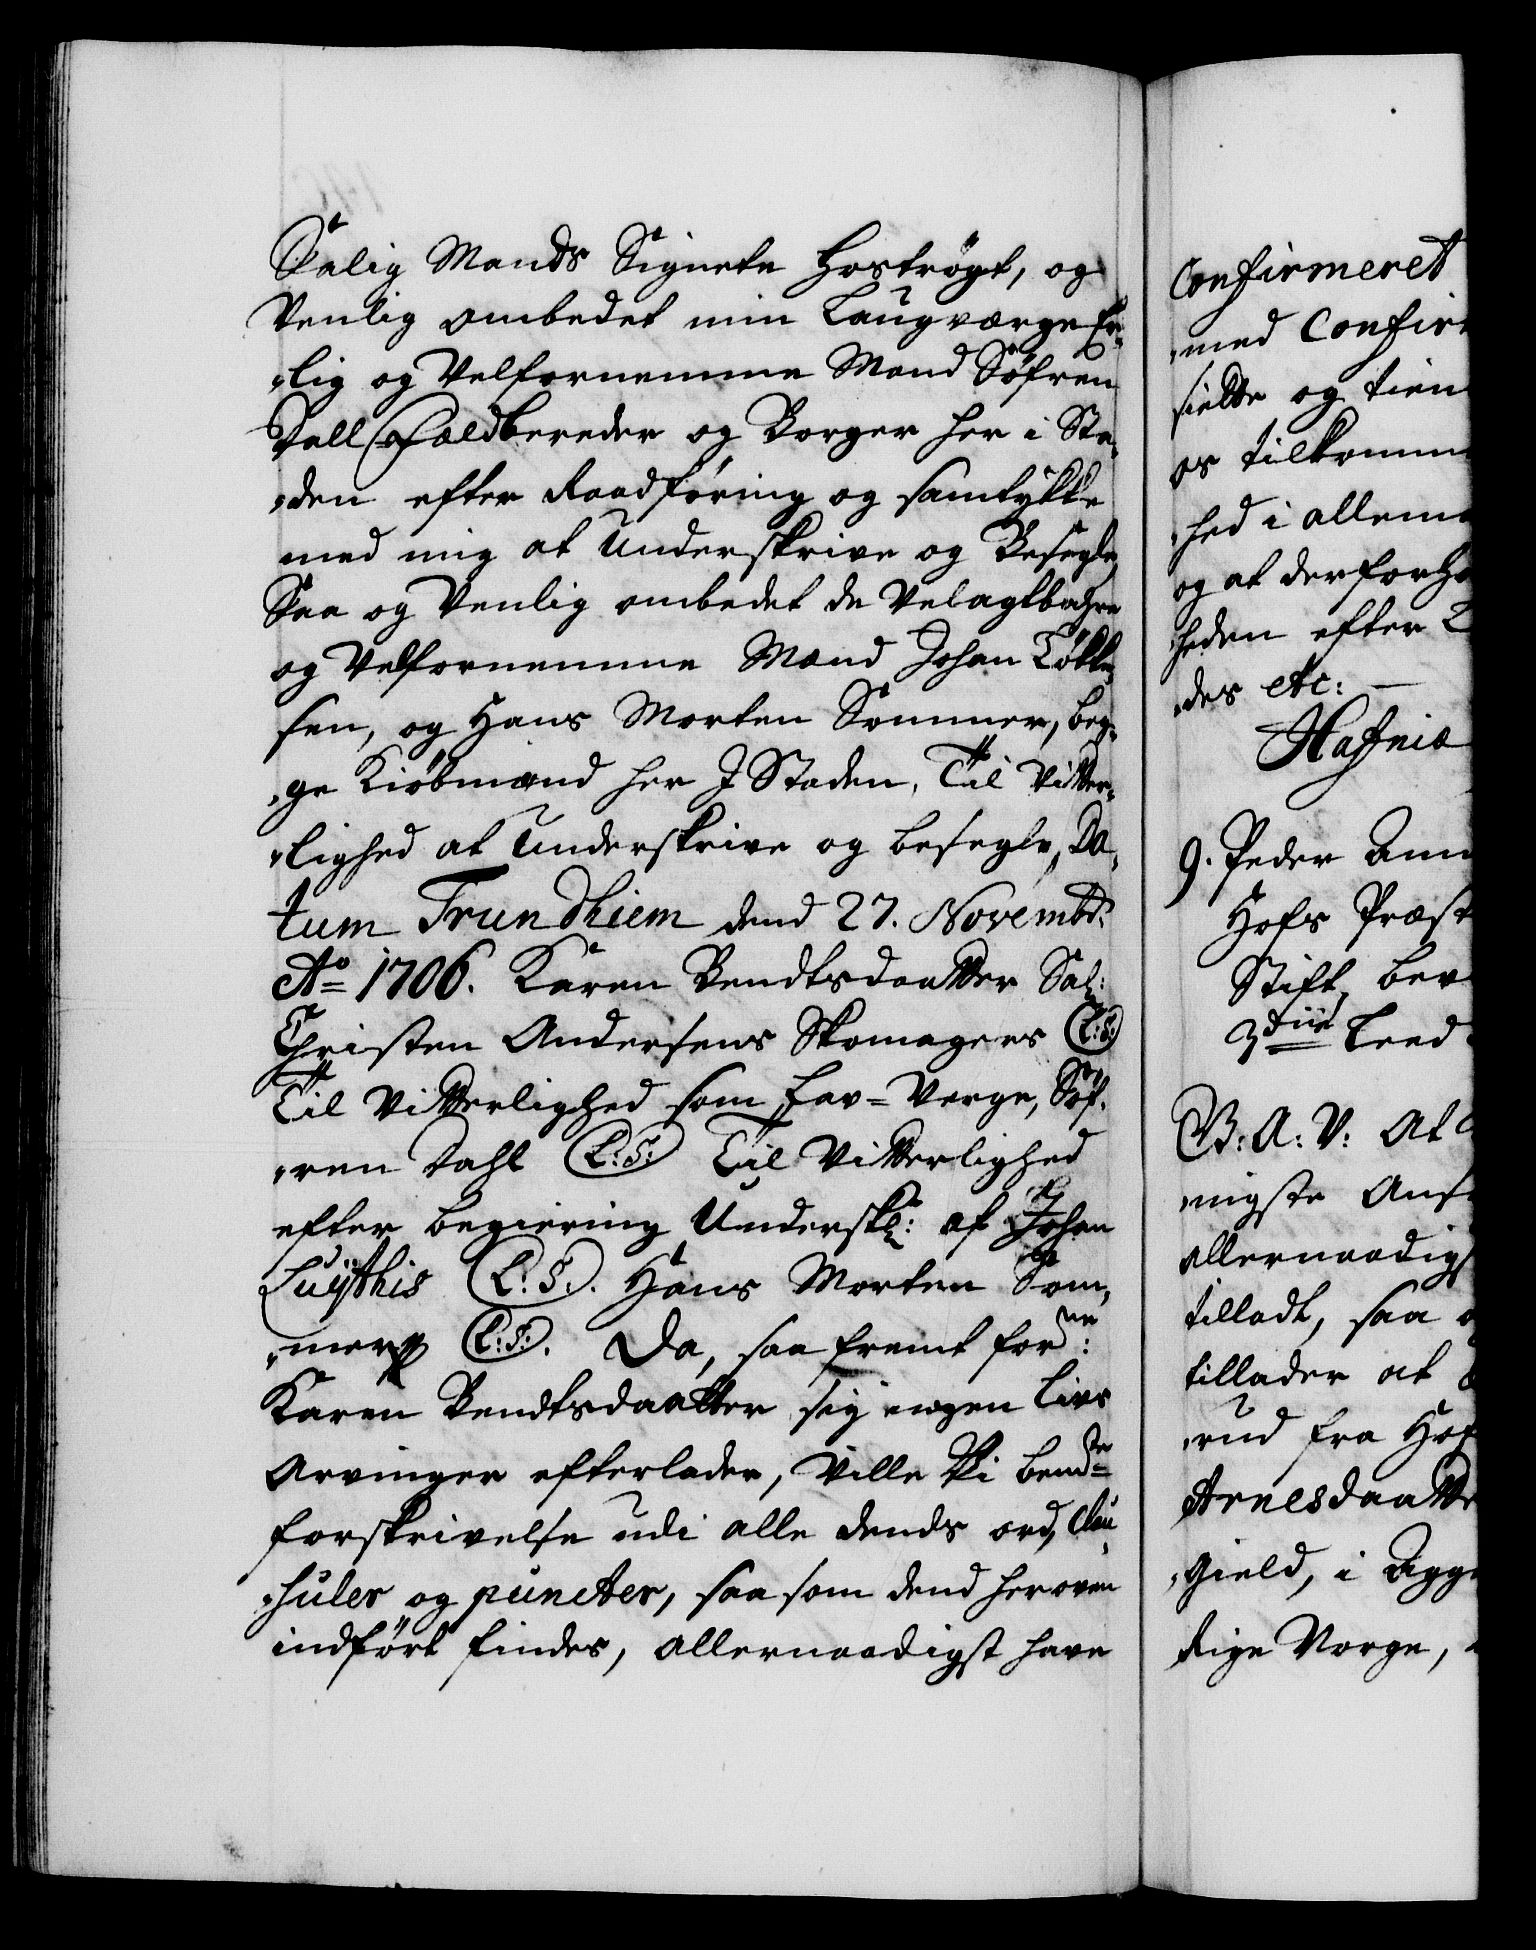 Salig Mands Signete hoströgt, og
Venlig ombedet min Laugværge Er-
„lig og Velfornemme Mand Söfren
Dall Faldbereder og Borger her i Sta-
„den efter Raadföring og samtykke
med mig at Underskrive og Besegle
Saa og Venlig ombedet de Velagtbahre
og Velfornemme Mænd Johan Lökke-
sen, og Hans Morten Sommer, beg-
„ge Kiöbmænd her J Staden, Til Vitter-
„lighed at Underskrive og besegle, Da-
tum Trundhiem dend 27. Novembr:
Ao 1706. Karen Bendtsdaatter Sal:
Christen Andersens Skomagers (L:S:)
Til Vitterlighed som Lav-Verge, Söf-
„ren Dahl (L:S:) Til Vitterlighed
efter begiering Underskr: af Johan
Luÿthis (L:S:). Hans Morten Som-
„mer (L:S:). Da, saafremt forne:
Karen Bendtsdaatter sig ingen Livs
Arvinger efterlader, Ville Vi bemte
forskrivelse udi alle dends ord, Clau-
„suler og puncter, saa som dend heroven
indfört findes, allernaadigst have
Confirmeret
„med Confir
sielde og tien
os tilkomm
„hed i allem
og at derforh
„heden efter L
„des etc: —
Hafniæ
9. Peder Am
Hofs Præst
Stift, bev
3die Leed
B: A: V: At
„nigste Ans
allernaadigs
tilladt, saa o
tillader at
„rud fra Hof
Arnesdaatte
„gield, i Agg
Rige Norge,